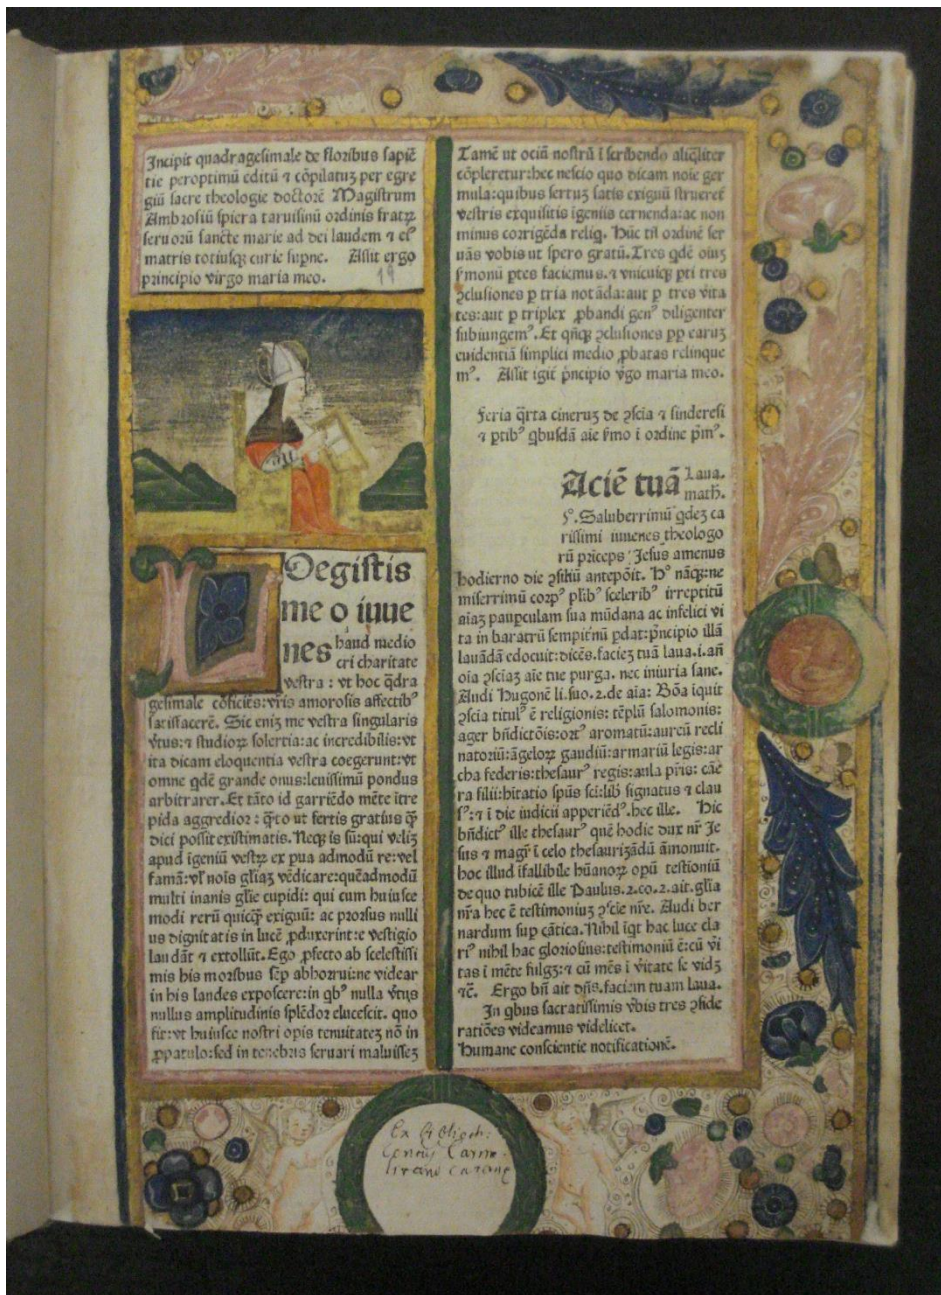 Incipit quadragesimale de floribus sapiē
tie peroptimū editū ⁊ cōpilatuʒ per egre
giū sacre theologie doctorē Magistrum
Ambrosiū spiera taruisinū ordinis fratꝝ
seruorū sancte marie ad dei laudem ⁊ eiꝰ
matris totiusqꝫ curie supne. Assit ergo
principio virgo maria meo.
19
Degistis
me o iuue
nes haud medio
cri charitate
vestra : vt hoc q̄dra
gesimale cōficiēs:vr̄is amorosis affectibꝰ
satisfacerē. Sic eniʒ me vestra singularis
v̓tus:⁊ studioꝝ solertia:ac incredibilis:vt
ita dicam eloquentia vestra coegerunt:vt
omne qdē grande onus:leuissimū pondus
arbitrarer. Et tāto id garriēdo mēte ītre
pida aggredior : q̄to ut fertis gratius q̄
dici possit existimatis. Neqꝫ is sū:qui veliʒ
apud īgeniū vestꝝ ex pua admodū re:vel
famā:vl̓ nois gl̄iaʒ vēdicare:quēadmodū
multi inanis gl̄ie cupidi: qui cum huiusce
modi rerū quicꝙ̄ exiguū: ac prorsus nulli
us dignitatis in lucē ꝓduxerint:e vestigio
laudāt ⁊ extollūt. Ego ꝓfecto ab scelestissi
mis his moribus sēp abhorrui:ne videar
in his laudes exposcere:in qbꝰ nulla v̓tus
nullus amplitudinis splēdor elucescit. quo
fit:vt huiusce nostri opis tenuitateʒ nō in
ꝓpatulo:sed in tenebris seruari maluisseʒ
Tamē ut ociū nostrū ī scribendo aliq̄liter
cōpleretur:hec nescio quo dicam noie ger
mula:quibus sertuʒ satis exiguū strueret̄
vestris exquisitis īgeniis cernenda:ac non
minus corrigēda reliq. Hūc tn̄ ordinē ser
uās vobis ut spero gratū. Tres qdē oiuʒ
s̓monū ptes faciemus. ⁊ vnicuiqꝫ pti tres
ꝯclusiones p tria notāda:aut p tres vita
tes:aut p triplex ꝓbandi genꝰ diligenter
subiungemꝰ. Et qn̄qꝫ ꝯclusiones pp earuʒ
euidentiā simplici medio ꝓbatas relinque
mꝰ. Assit igit̄ p̓ncipio v̓go maria meo.
Feria q̄rta cineruʒ de ꝯscia ⁊ sinderesi
⁊ ptibꝰ qbusdā aie s̓mo ī ordine p̄mꝰ.
Aciē tuā Laua.
math.
5º. Saluberrimū qdeʒ ca
rissimi iuuenes theologo
rū priceps Jesus amenus
hodierno die ꝯsiliū antepōit. Hꝰ nāqꝫ:ne
miserrimū corpꝰ pl̄ibꝰ sceleribꝰ irreptitū
aīaʒ paupculam sua mūdana ac infelici vi
ta in baratrū sempit̓nū pdat:p̓ncipio illā
lauādā edocuit:dicēs.facieʒ tuā laua.i.an̄
oīa ꝯsciaʒ aīe tue purga. nec iniuria sane.
Audi Hugonē li.suo.2.de aīa: Bōa īquit
ꝯscia titulꝰ ē religionis: tēplū salomonis:
ager bn̄dictōis:ortꝰ aromatū:aureū recli
natoriū:āgeloꝝ gaudiū:armariū legis:ar
cha federis:thesaurꝰ regis:aula pr̄is: cāe
ra filii:hītatio sp̄us sc̄i:lib̓ signatus ⁊ clau
sꝰ:⁊ ī die iudicii apperiēdꝰ.hec ille. Hic
bn̄dictꝰ ille thesaurꝰ quē hodie dux nr̄ Je
sus ⁊ magr̄ ī celo thesaurizādū āmonuit.
hoc illud īfallibile hūanoꝝ opū testioniū
de quo tubicē ille Paulus.2.co.2.ait.gl̄ia
nr̄a hec ē testimoniuʒ ꝯscie nr̄e. Audi ber
nardum sup cātica. Nihil īqt hac luce cla
riꝰ nihil hac gloriosius:testimoniū ē:cū v̓i
tas ī mēte fulgʒ:⁊ cū mēs ī v̓itate se vidʒ
⁊c̄. Ergo bn̄ ait dn̄s.faciem tuam laua.
In qbus sacratissimis v̓bis tres ꝯside
ratiōes videamus videlicet.
Humane conscientie notificationē.
Ex Biblioth: